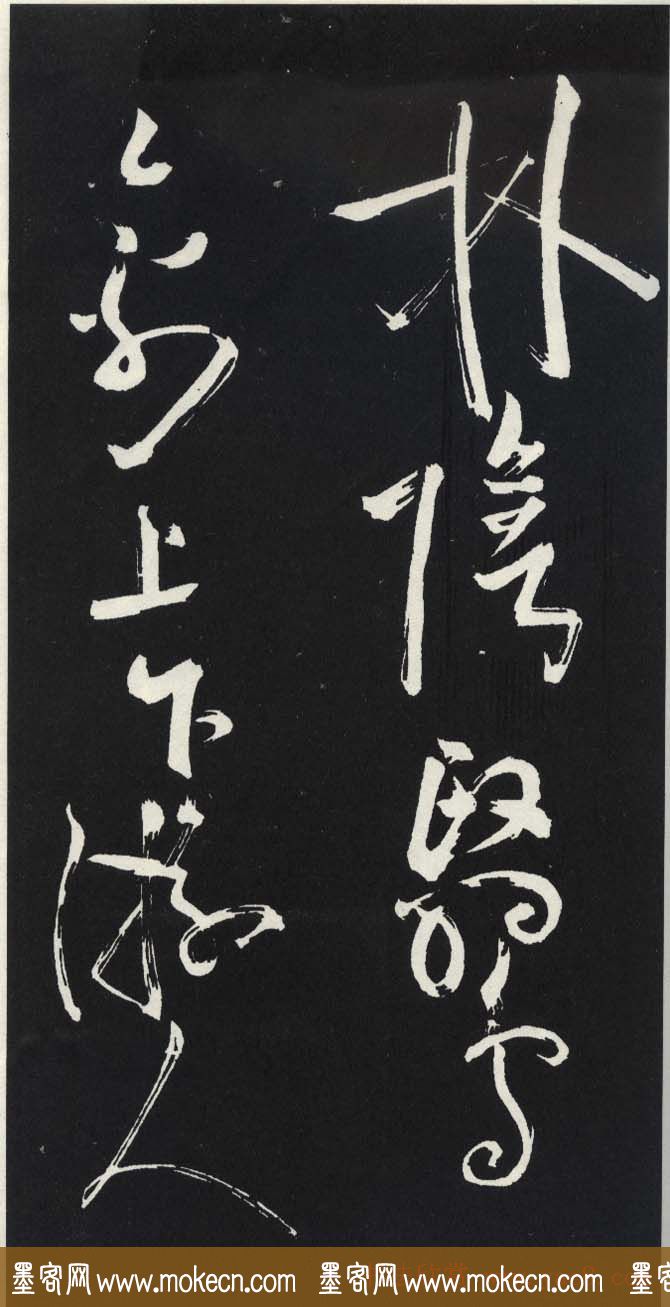 林陰翳鳴
聲上下游人
墨客网 www.mokecn.com 墨客网 www.mokecn.com 墨客